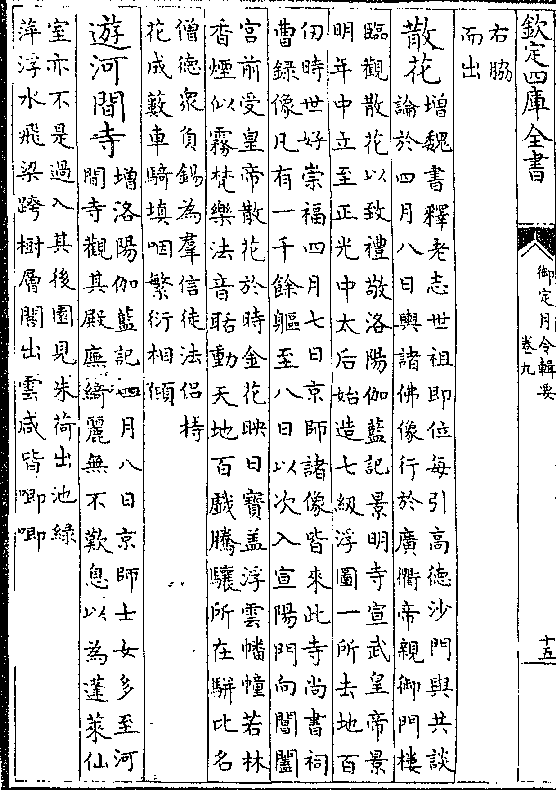 欽定四庫全書
御定月令輯要
卷九
十五
右脇
而出
散花
增魏書釋老志世祖即位每引高德沙門與共談
論於四月八日輿諸佛像行於廣衢帝親御門樓
臨觀散花以致禮敬洛陽伽藍記景明寺宣武皇帝景
明年中立至正光中太后始造七級浮圖一所去地百
仞時世好崇福四月七日京師諸像皆來此寺尚書祠
曹錄像凡有一千餘軀至八日以次入宣陽門向閶闔
宮前受皇帝散花於時金花映日寶盖浮雲幡幢若林
香煙似霧梵樂法音聒動天地百戲騰驤所在駢比名
僧德衆負錫為羣信徒法侶持
花成藪車騎填咽繁衍相傾
遊河間寺
增洛陽伽藍記四月八日京師士女多至河
間寺觀其殿廡綺麗無不歎息以為蓬萊仙
室亦不是過入其後園見朱荷出池綠
萍浮水飛梁跨樹層閣出雲咸皆唧唧